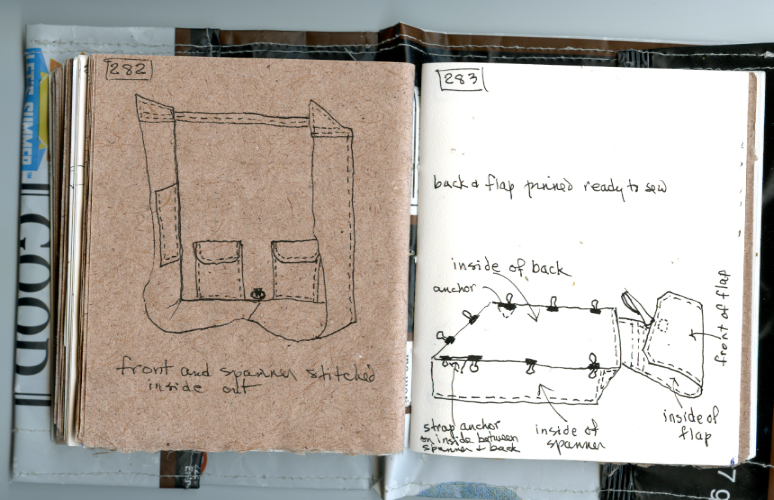 282
front and spanner stitched
inside out
283
back & flap pinned ready to sew
inside of back
anchor
front of flap
strap anchor
on inside between
spanner + back
inside of
spanner
inside of
flap
LET'S SUMMER
GOOD